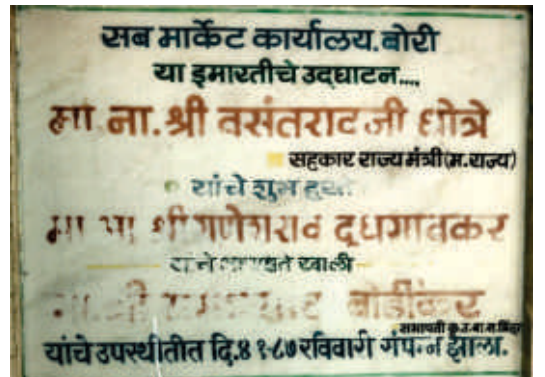 सब मार्केट कार्यालय.बोरी
या इमारतीचे उदघाटन....
मा. ना. श्री वसंतराव जी धोत्रे
सहकार राज्य मंत्री(म.राज्य)
यांचे शुभ हस्ते
मा श्री गणेशराव दुधगावकर
खाली
श्री बोर्डीकर
सभापती कृ.उ.बा.स.
यांचे उपस्थीतीत दि.४ १-८७ रविवारी संपन्न झाला.